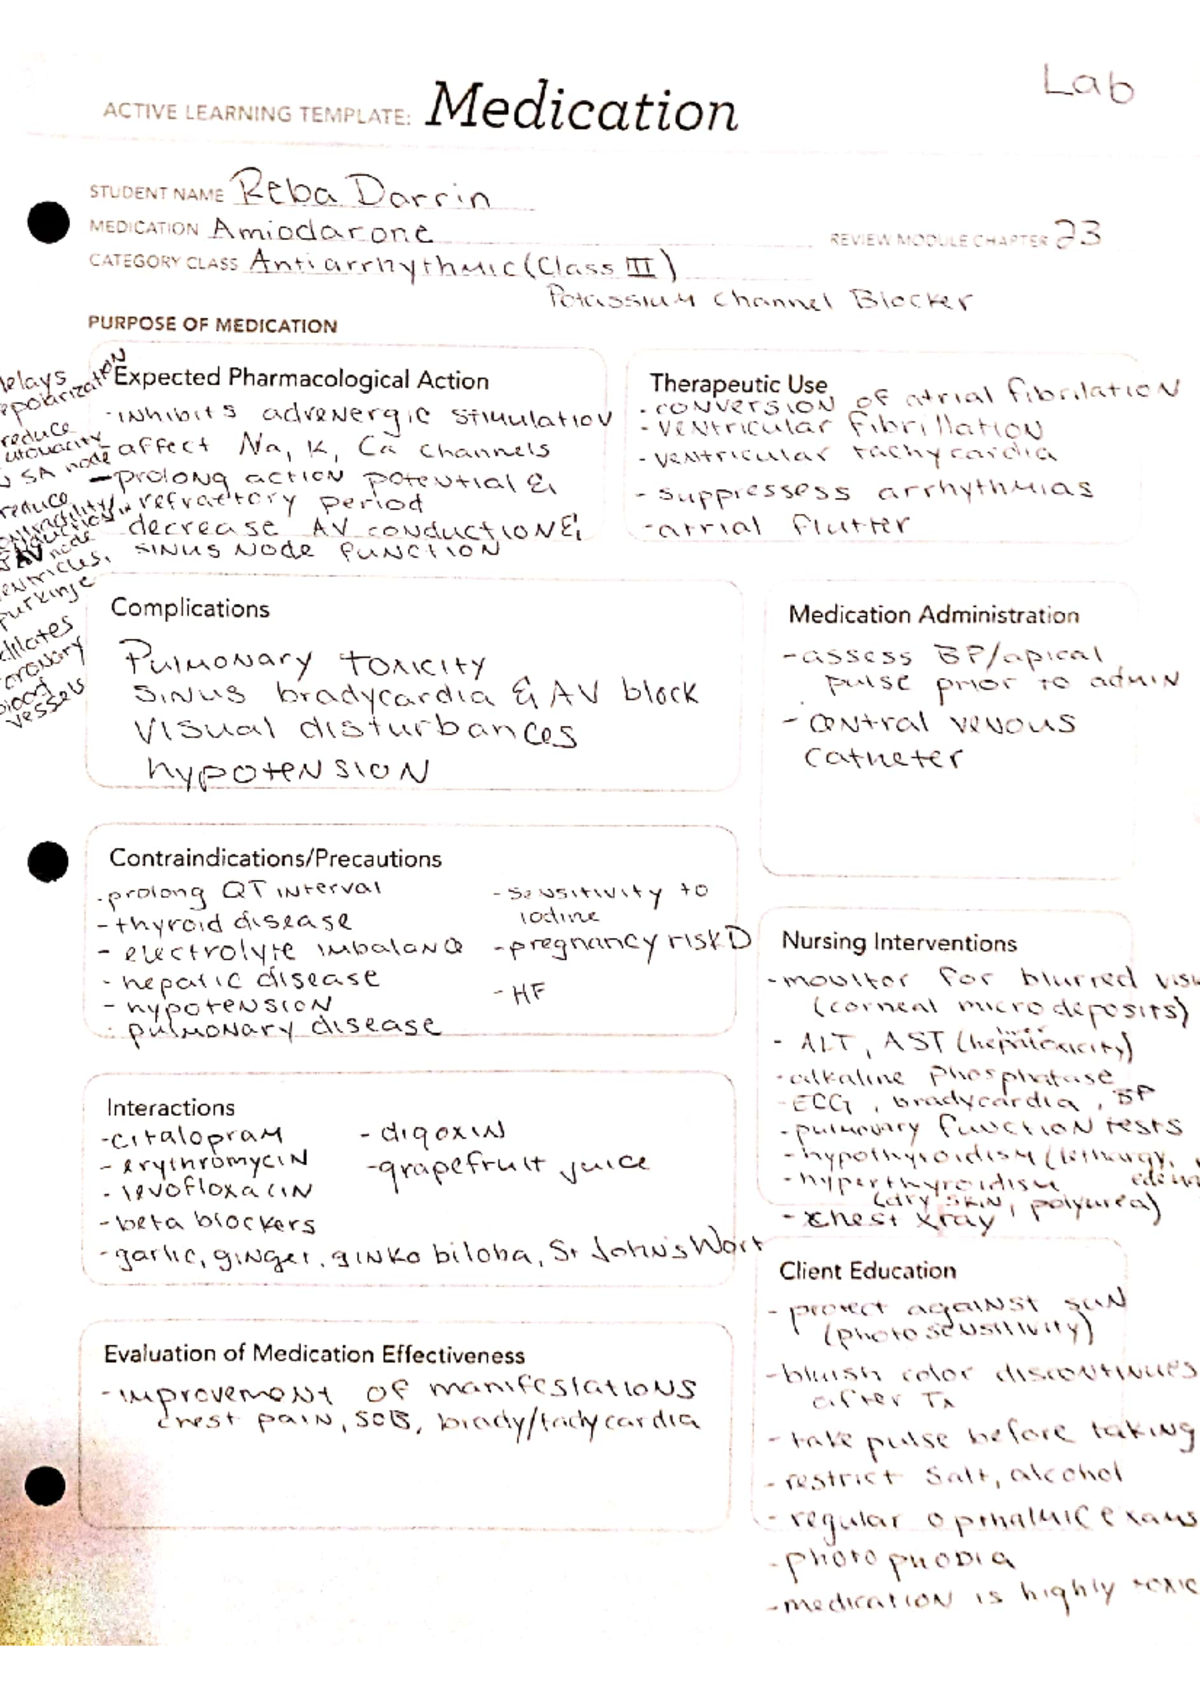 Lab
ACTIVE LEARNING TEMPLATE: Medication
STUDENT NAME Reba Darrin
MEDICATION Amiodarone
REVIEW MODULE CHAPTER 23
CATEGORY CLASS Antiarrhythmic (Class III)
Potassium Channel Blocker
PURPOSE OF MEDICATION
delays
repolarization
reduce
SA node
reduce
AV node
ventricles,
purkinje
dilates
coronary
blood
vessels
Expected Pharmacological Action
-inhibits adrenergic stimulation
-affect Na, K, Ca channels
-prolong action potential &
refractory period
decrease AV conduction &
sinus node function
Therapeutic Use
-conversion of atrial fibrilation
-ventricular fibrillation
-ventricular tachycardia
-suppressess arrhythmias
-atrial flutter
Complications
Pulmonary toxicity
sinus bradycardia & AV block
visual disturbances
hypotension
Medication Administration
-assess BP/apical
pulse prior to admin
- central venous
catheter
Contraindications/Precautions
-prolong QT interval
-thyroid disease
- electrolyte imbalance
- hepatic disease
- hypotension
- pulmonary disease
-sensitivity to
iodine
-pregnancy risk D
-HF
Nursing Interventions
-monitor for blurred
(corneal microdeposits)
- ALT, AST (hepatotoxicity)
liver
-alkaline phosphatase
-ECG, bradycardia, BP
-pulmonary function tests
-hypothyroidism (lethargy,
-hyperthyroidism
(dry skin, polyurea)
-chest xray
Interactions
-citalopram
- erythromycin
- levofloxacin
-beta blockers
-garlic, ginger, ginko biloba, St John's Wort
- digoxin
-grapefruit juice
Client Education
- protect against sun
(photosensitivity)
-bluish color discontinues
after Tx
-take pulse before taking
-restrict salt, alcohol
-regular opthalmic exams
-photophobia
-medication is highly toxic
Evaluation of Medication Effectiveness
-improvement of manifestations
chest pain, SOB, brady/tachycardia